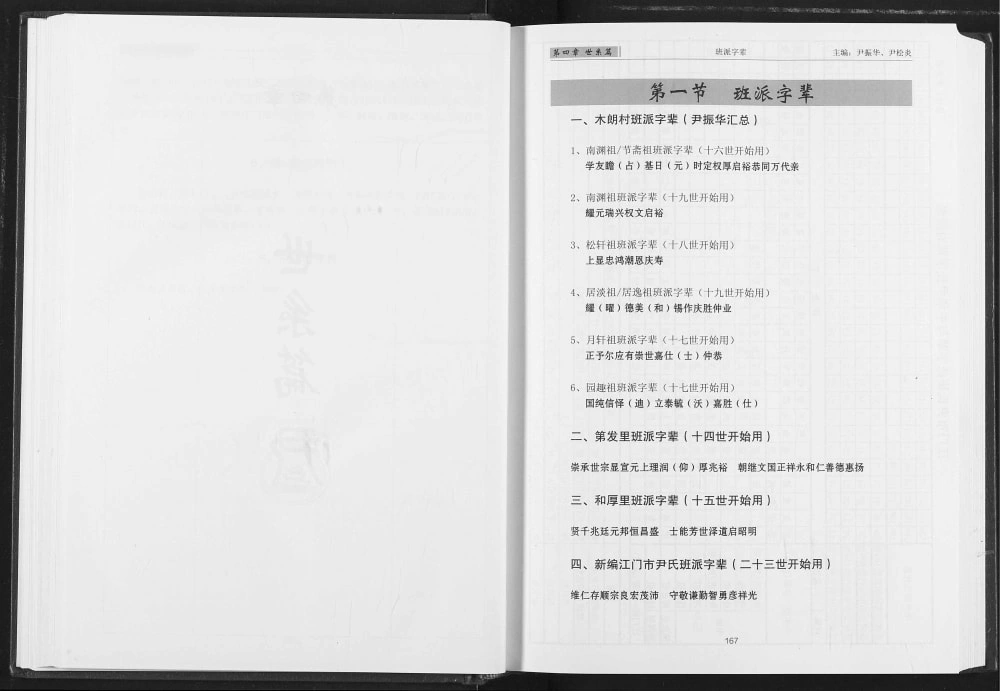 第四章 世系篇
班派字辈
主编：尹振华、尹松炎
第一节 班派字辈
一、木朗村班派字辈（尹振华汇总）
1、南渊祖/节斋祖班派字辈（十六世开始用）
学友瞻（占）基日（元）时定权厚启裕恭同万代亲
2、南渊祖班派字辈（十九世开始用）
耀元瑞兴权文启裕
3、松轩祖班派字辈（十八世开始用）
上显忠鸿潮恩庆寿
4、居淡祖/居逸祖班派字辈（十九世开始用）
耀（曜）德美（和）锡作庆胜仲业
5、月轩祖班派字辈（十七世开始用）
正予尔应有崇世嘉仕（士）仲恭
6、园趣祖班派字辈（十七世开始用）
国纯信怿（迪）立泰毓（沃）嘉胜（仕）
二、第发里班派字辈（十四世开始用）
崇承世宗显宣元上理润（仰）厚兆裕 朝继文国正祥永和仁善德惠扬
三、和厚里班派字辈（十五世开始用）
贤千兆廷元邦恒昌盛 士能芳世泽道启昭明
四、新编江门市尹氏班派字辈（二十三世开始用）
维仁存顺宗良宏茂沛 守敬谦勤智勇彦祥光
167
世系篇